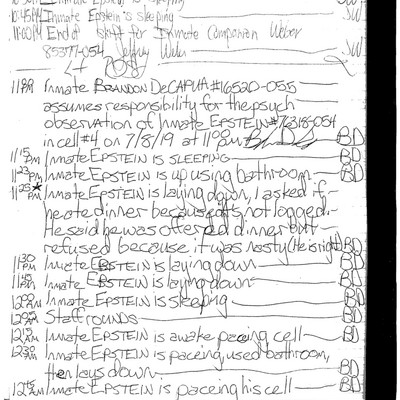 Inmate Epstein is sleeping
10:45PM Inmate Epstein's sleeping
11:00PM End of shift for Inmate Companion Weber
85377-054
11PM Inmate BRANDON DeCAPUA #16520-055
assumes responsibility for the psych
observation of Inmate EPSTEIN #76318-054
in cell #4 on 7/8/19 at 11:00pm BD
11:15PM Inmate EPSTEIN is sleeping BD
11:23PM Inmate EPSTEIN is up using bathroom BD
11:25PM* Inmate EPSTEIN is laying down, I asked if
he ate dinner because it's not logged.
He said he was offered dinner but
refused because it was nasty (He is right) BD
11:30PM Inmate EPSTEIN is laying down BD
Inmate EPSTEIN is laying down BD
12:00AM Inmate EPSTEIN is sleeping BD
Staff rounds BD
12:15AM Inmate EPSTEIN is awake pacing cell BD
12:30AM Inmate EPSTEIN is pacing, used bathroom,
then lays down BD
Inmate EPSTEIN is pacing his cell BD